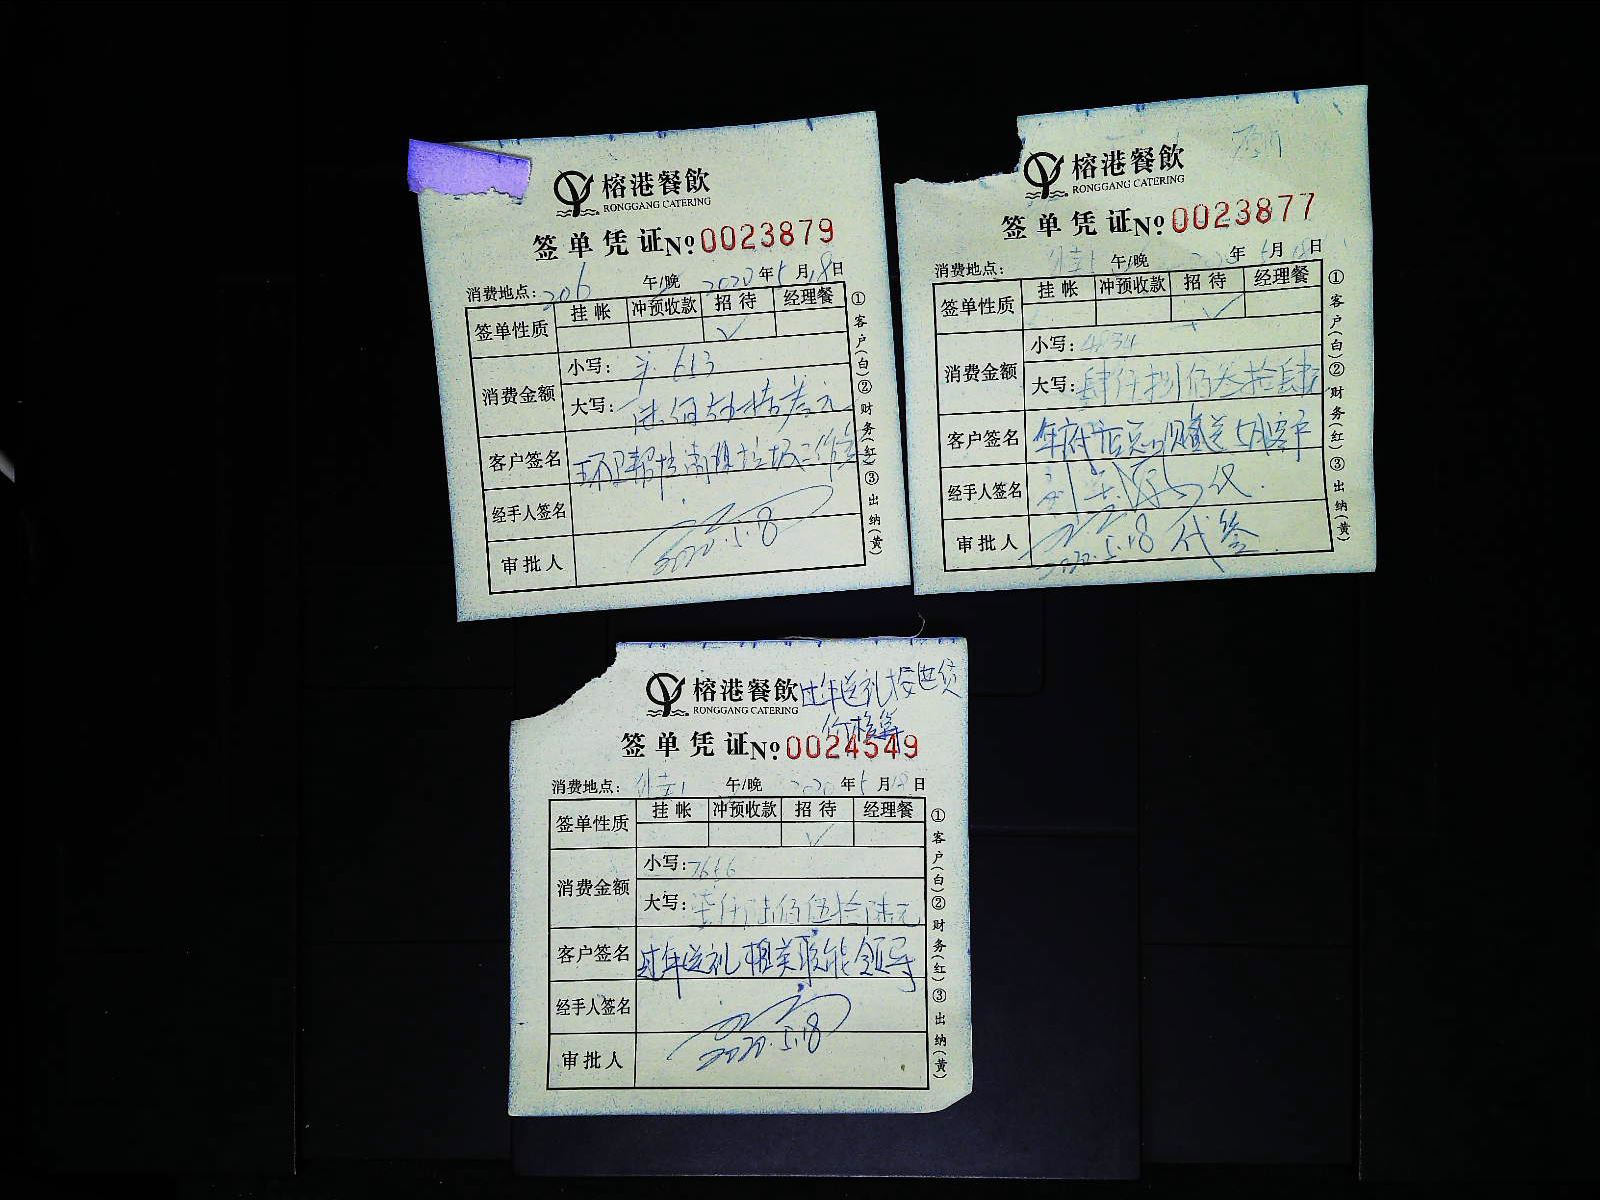 榕港餐飲
RONGGANG CATERING
签单凭证 №0023879
消费地点：206 午/晚 2020年5月18日
签单性质 挂帐 冲预收款 招待 经理餐
√
消费金额 小写： 613
大写：陆佰壹拾叁元
客户签名
经手人签名
审批人 2020.5.18
①客户(白)②财务(红)③出纳(黄)
榕港餐飲
RONGGANG CATERING
签单凭证 №0023877
消费地点：外卖1 午/晚 2020年5月18日
签单性质 挂帐 冲预收款 招待 经理餐
√
消费金额 小写：4834
大写：肆仟捌佰叁拾肆元
客户签名 客户
经手人签名 代
审批人 2020.5.18 代签
①客户(白)②财务(红)③出纳(黄)
过年送礼按进货
价格算
榕港餐飲
RONGGANG CATERING
签单凭证 №0024549
消费地点：外卖1 午/晚 2020年5月18日
签单性质 挂帐 冲预收款 招待 经理餐
√
消费金额 小写：7656
大写：柒仟陆佰伍拾陆元
客户签名 过年送礼相关职能领导
经手人签名
审批人 2020.5.18
①客户(白)②财务(红)③出纳(黄)